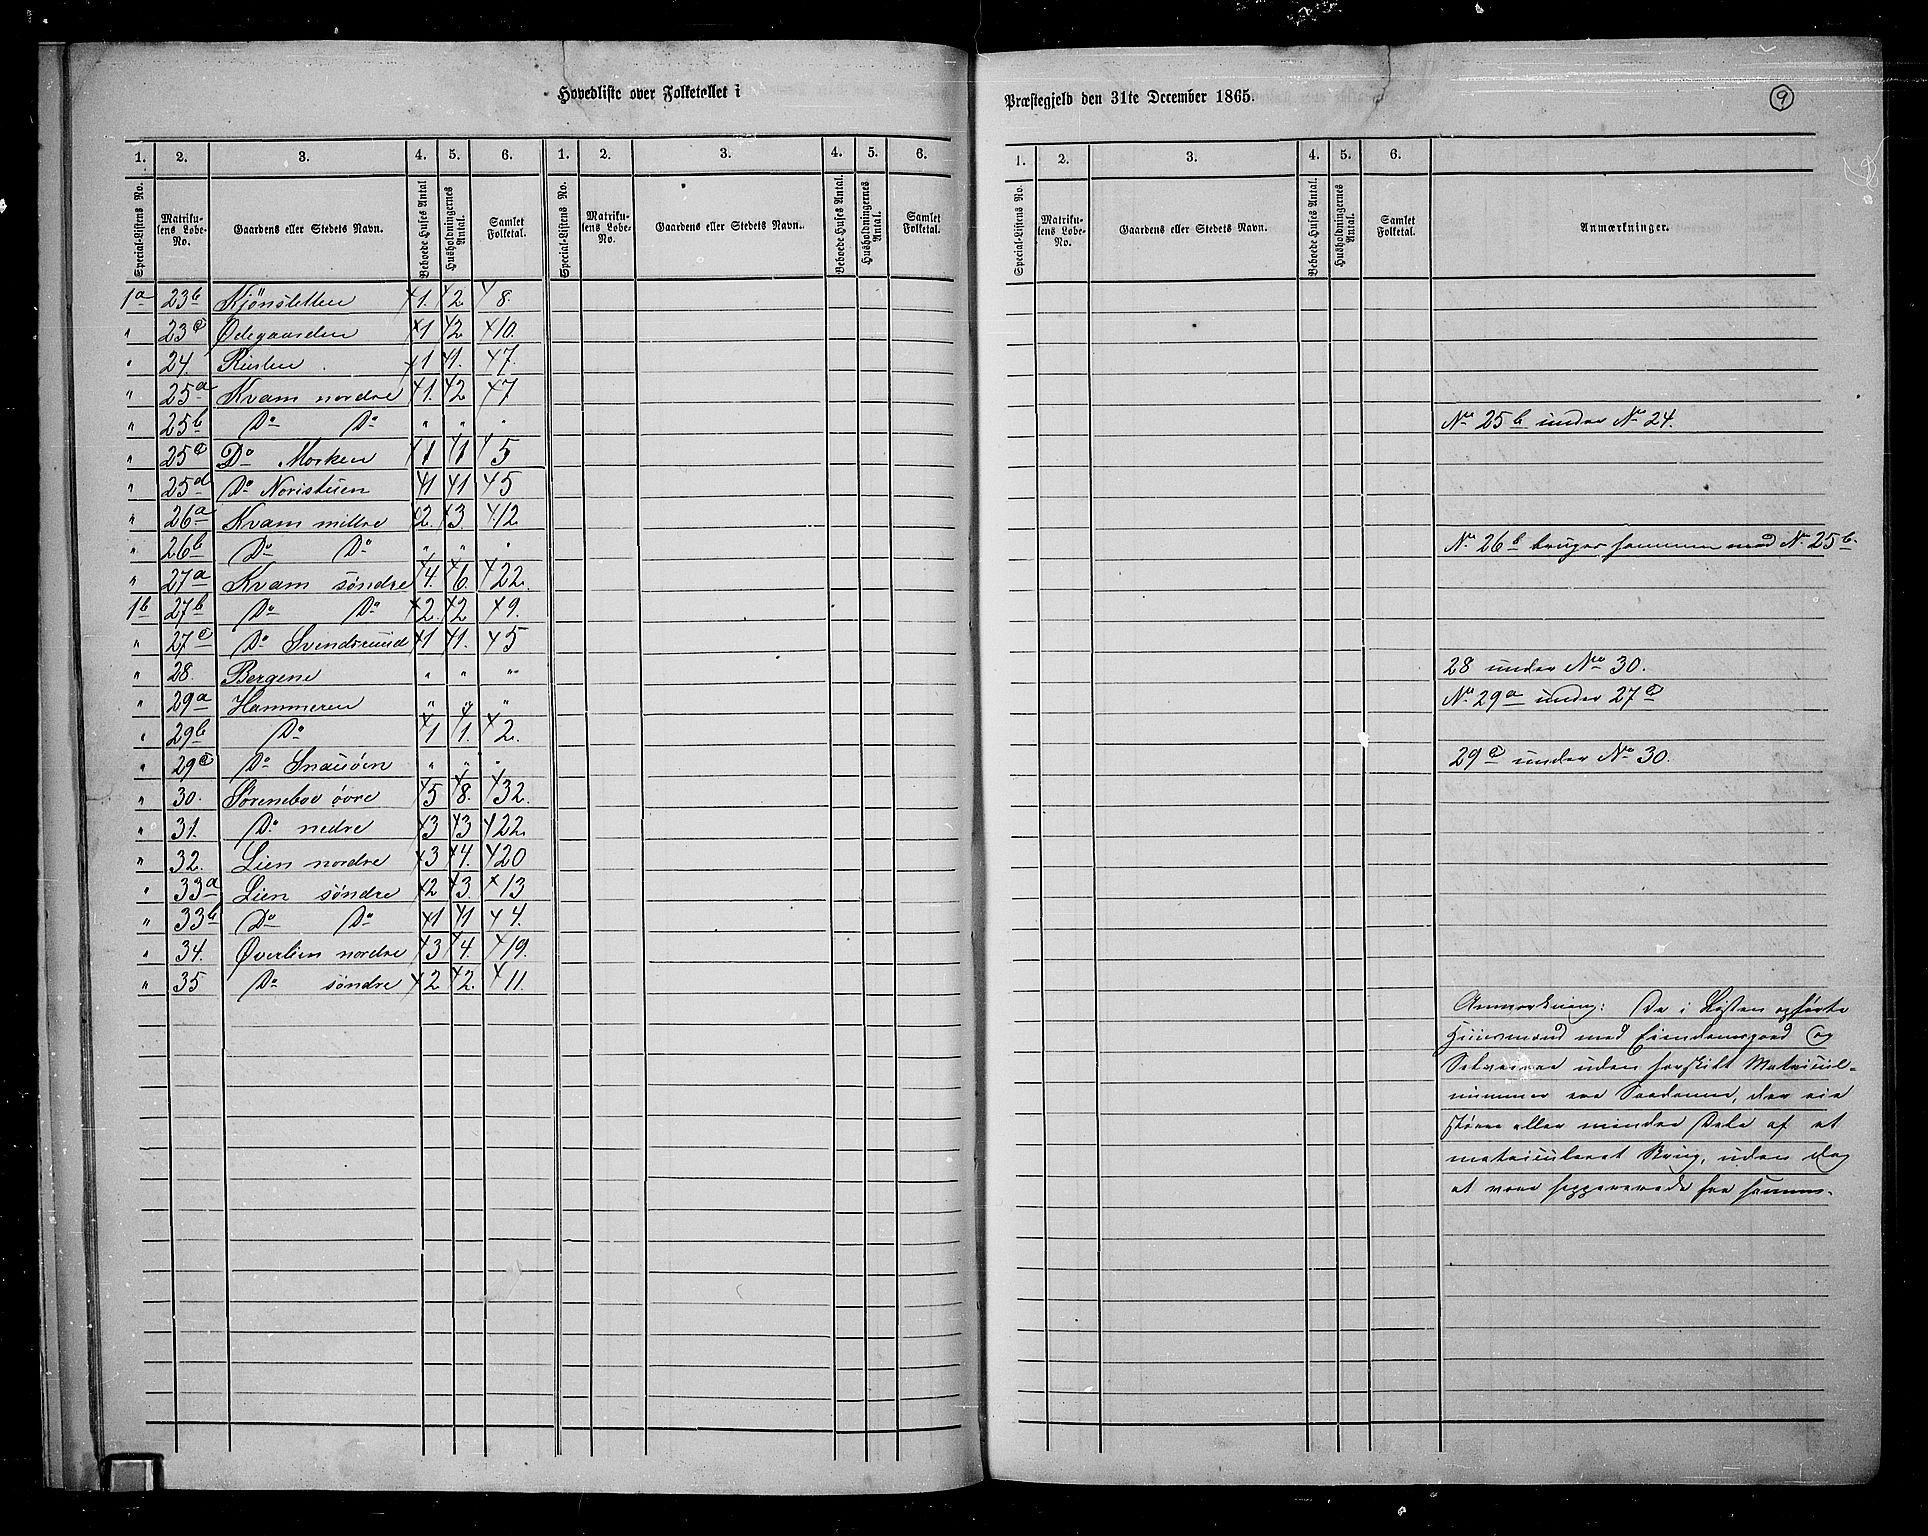 Hovedliste over Folketallet i
Præstegjeld den 31te December 1865.
9
1. 2. 3. 4. 5. 6. 1. 2. 3. 4. 5. 6.
Special-Listens No. Matrikulens Løbe-No. Gaardens eller Stedets Navn. Beboede Huses Antal Husholdningernes Antal. Samlet Folketal. Special-Listens No. Matrikulens Løbe-No. Gaardens eller Stedets Navn. Beboede Huses Antal. Husholdningernes Antal. Samlet Folketal.
1a 23b Kjönsletten 1. 2 8.
" 23c Ødegaarden 1 2 10.
" 24. Rusten 1 1. 7.
" 25a Kvam nordre 1. 2 7
" 25b Do Do " " "
" 25c Do Moken 1 1 5
" 25d Do Noristuen 1 1 5
" 26a Kvam mittre 2. 3. 12.
" 26b Do Do " " "
" 27a Kvam søndre 4. 6. 22.
1b 27b Do Do 2. 2 9.
" 27c Do Svendsruud 1 1. 5
" 28. Bergene " " "
" 29a Hammeren " " "
" 29b Do 1 1. 2.
" 29c Do Snauöen " " "
" 30. Söreneboe övre 5 8. 32.
" 31. Do nedre 3 3 22.
" 32. Lien nordre 3 4. 20
" 33a Lien søndre 2 3. 13
" 33b Do Do 1 1 4.
" 34. Øverlien nordre 3 4. 19.
" 35 Do søndre 2 2. 11.
1. 2. 3. 4. 5. 6.
Special-Listens No. Matrikulens Løbe-No. Gaardens eller Stedets Navn. Beboede Huses Antal. Husholdningernes Antal. Samlet Folketal. Anmærkninger.
No 25b under No 24.
No 26b bruges sammen med No 25b.
28 under No 30.
No 29a under 27c
29c under No 30.
Anmærkning: De i Listen opførte
Huusmænd med Eiendomsgaard og
Selveiere uden særskilt Matricul-
nummer ere Saadanne, der eie
større eller mindre Dele af et
matriculeret Brug, uden dog
at være sepparerede fra samme.